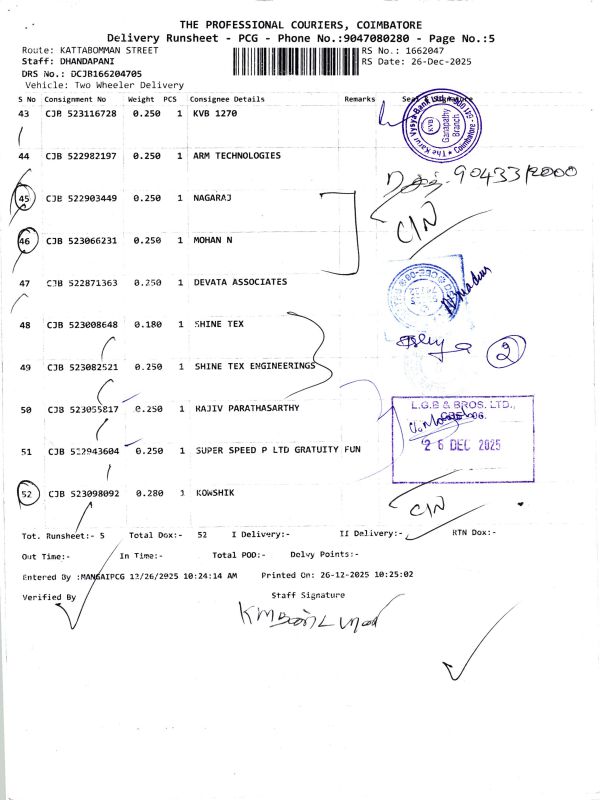 THE PROFESSIONAL COURIERS, COIMBATORE
Delivery Runsheet - PCG - Phone No.:9047080280 - Page No.:5
Route: KATTABOMMAN STREET
RS No.: 1662047
Staff: DHANDAPANI
RS Date: 26-Dec-2025
DRS No.: DCJB166204705
Vehicle: Two Wheeler Delivery
S No Consignment No Weight PCS Consignee Details Remarks Seal & Signature
43 CJB 523116728 0.250 1 KVB 1270
The Karur Vysya Bank Ltd
KVB
Ganapathy
Branch
Coimbatore
44 CJB 522982197 0.250 1 ARM TECHNOLOGIES
45 CJB 522903449 0.250 1 NAGARAJ
CIN
46 CJB 523066231 0.250 1 MOHAN N
47 CJB 522871363 0.250 1 DEVATA ASSOCIATES
48 CJB 523008648 0.180 1 SHINE TEX
2
49 CJB 523082521 0.250 1 SHINE TEX ENGINEERINGS
50 CJB 523055817 0.250 1 RAJIV PARATHASARTHY
L.G.B & BROS. LTD.,
26 DEC 2025
51 CJB 522943604 0.250 1 SUPER SPEED P LTD GRATUITY FUN
52 CJB 523098092 0.280 1 KOWSHIK
CIN
Tot. Runsheet:- 5 Total Dox:- 52 I Delivery:- II Delivery:- RTN Dox:-
Out Time:- In Time:- Total POD:- Delvy Points:-
Entered By :MANGAIPCG 12/26/2025 10:24:14 AM Printed On: 26-12-2025 10:25:02
Verified By Staff Signature